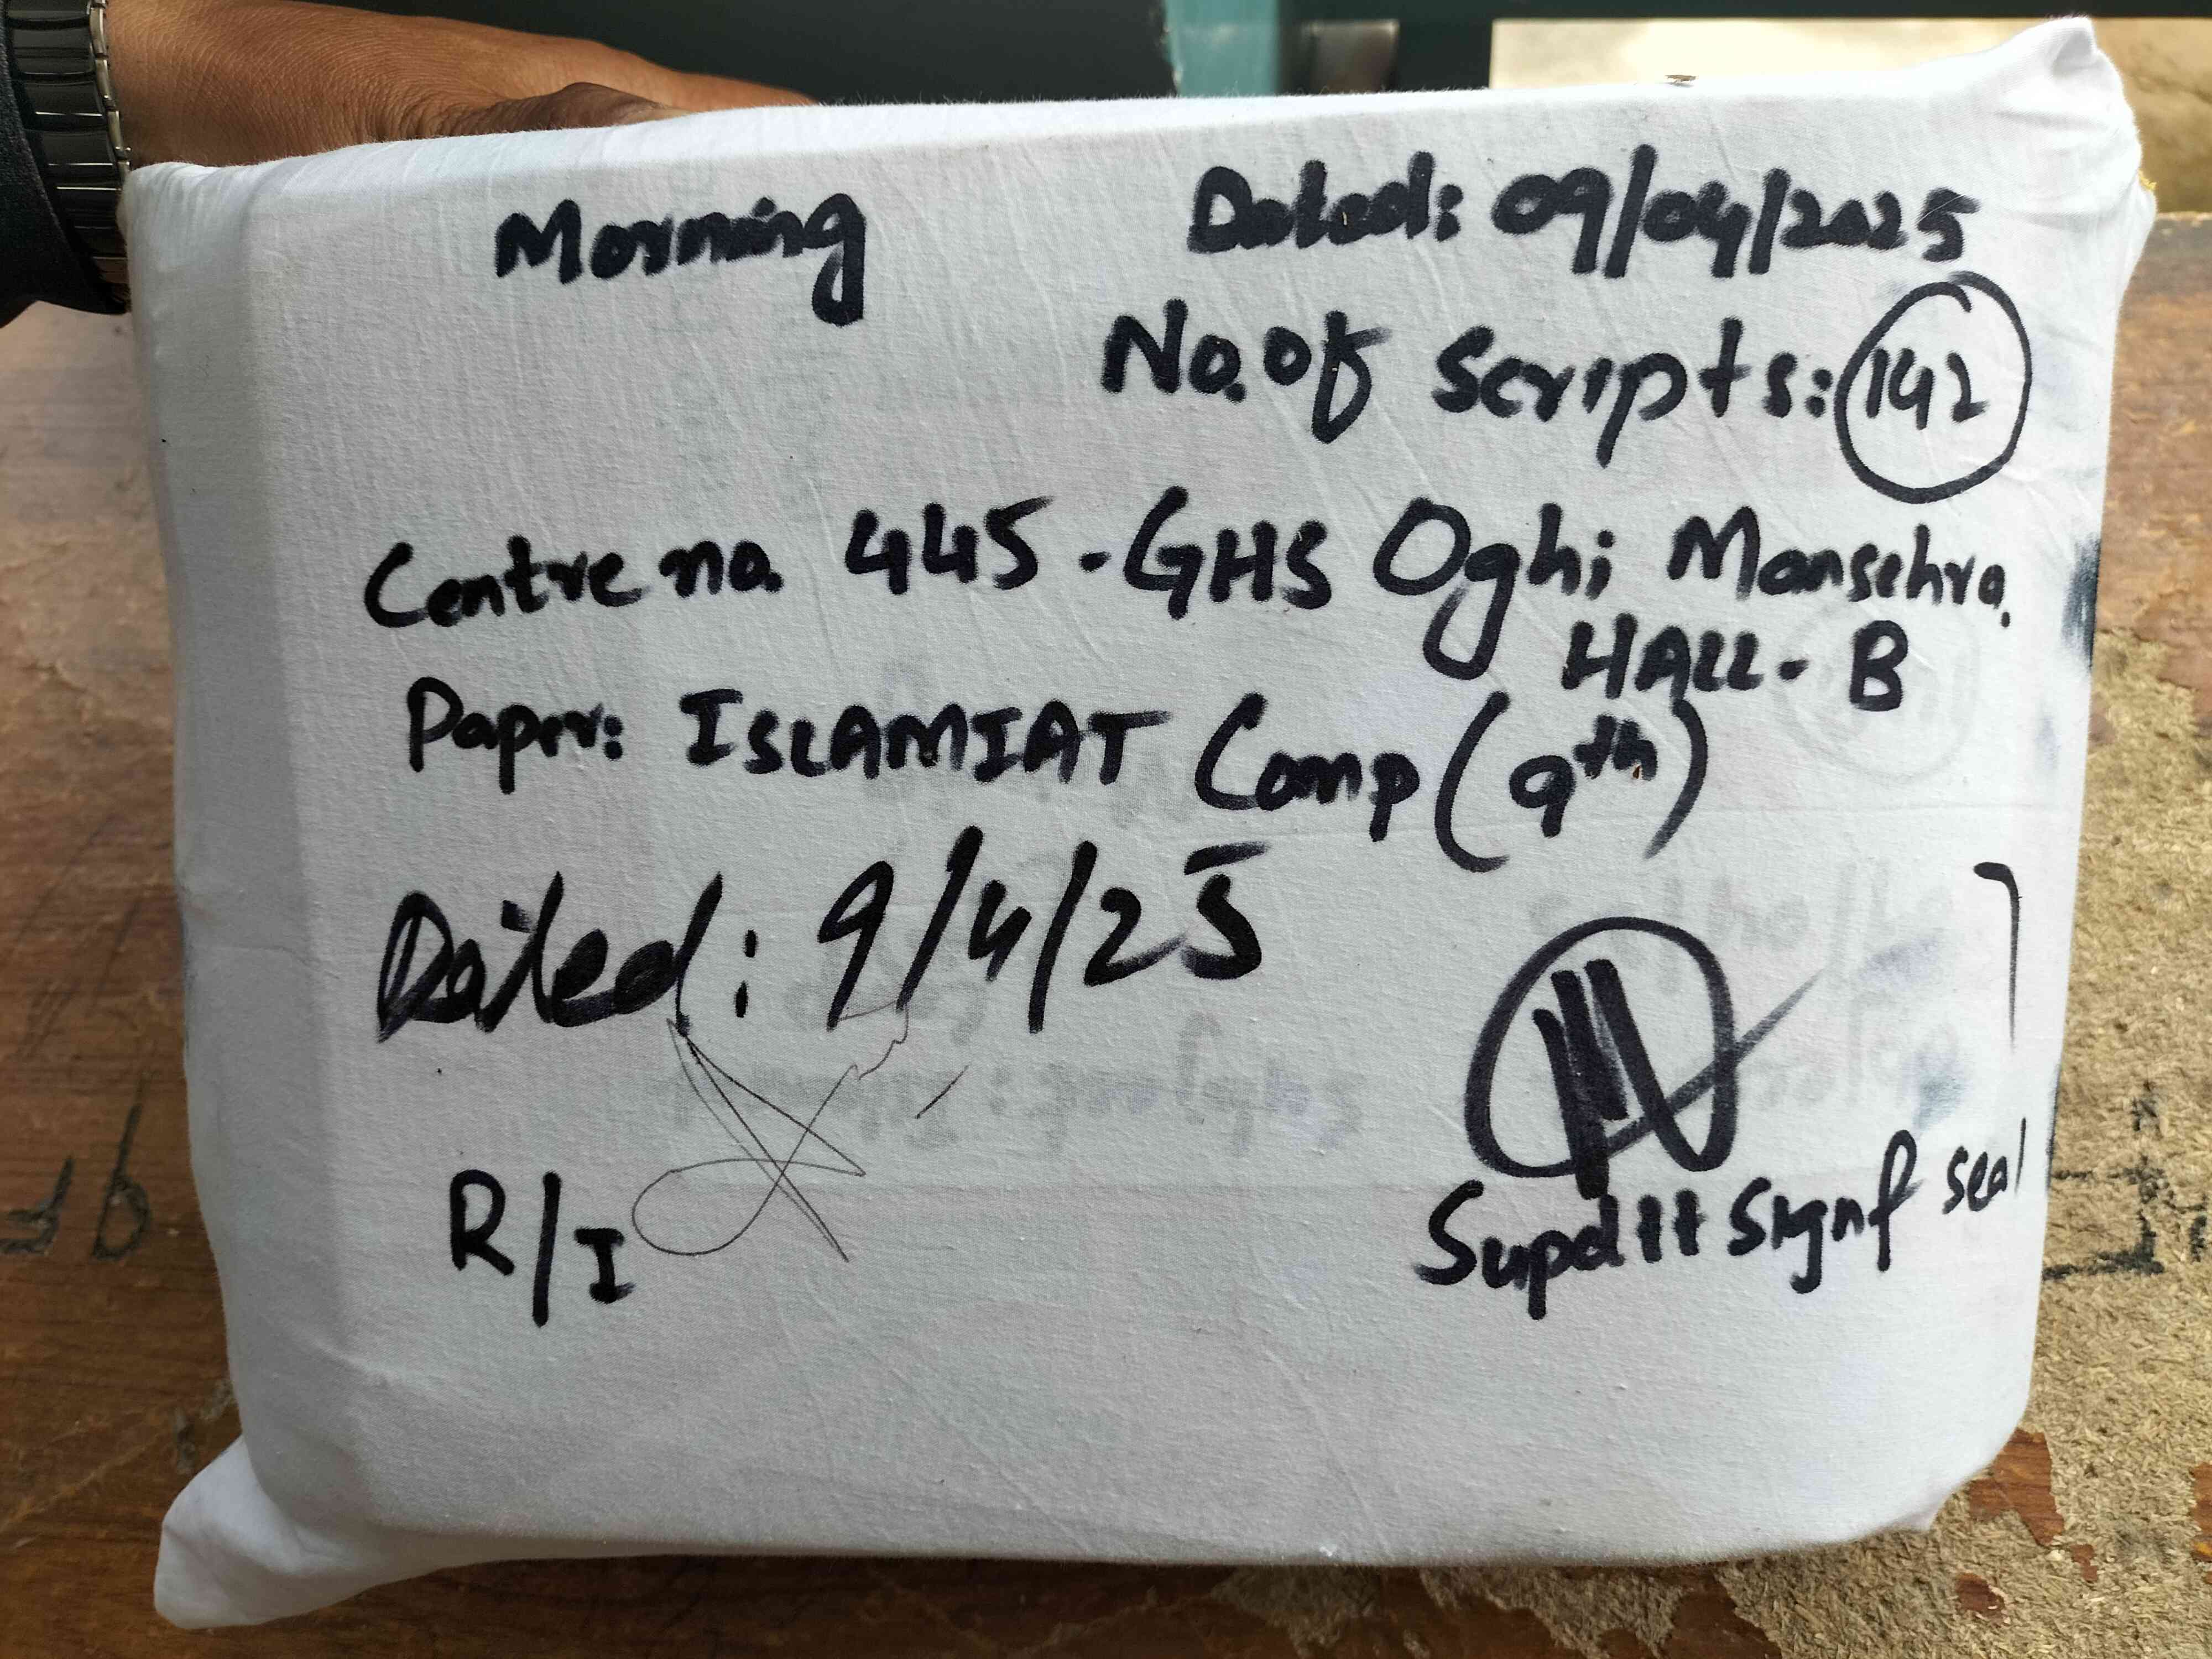 Morning Dated: 09/04/2025
No. of Scripts: 142
Centre no. 445 - GHS Oghi Mansehra.
HALL - B
Paper: ISLAMIAT Comp (9th)
Dated: 9/4/25
R/I
Supdtt Signf seal